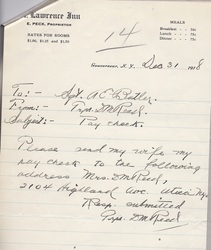 Lawrence Inn
E. PECK, PROPRIETOR
RATES FOR ROOMS
$1.00, $1.25 and $1.50
MEALS
Breakfast
Lunch
Dinner
14
Gouverneur, N. Y., Dec 31 1918
To:- Sgt. A C Butler.
From:-
Subject:- Pay check.
Please send my wife my
pay check to the following
address Mrs.
2104 Highland ave. Utica Ny.
Resp. submitted